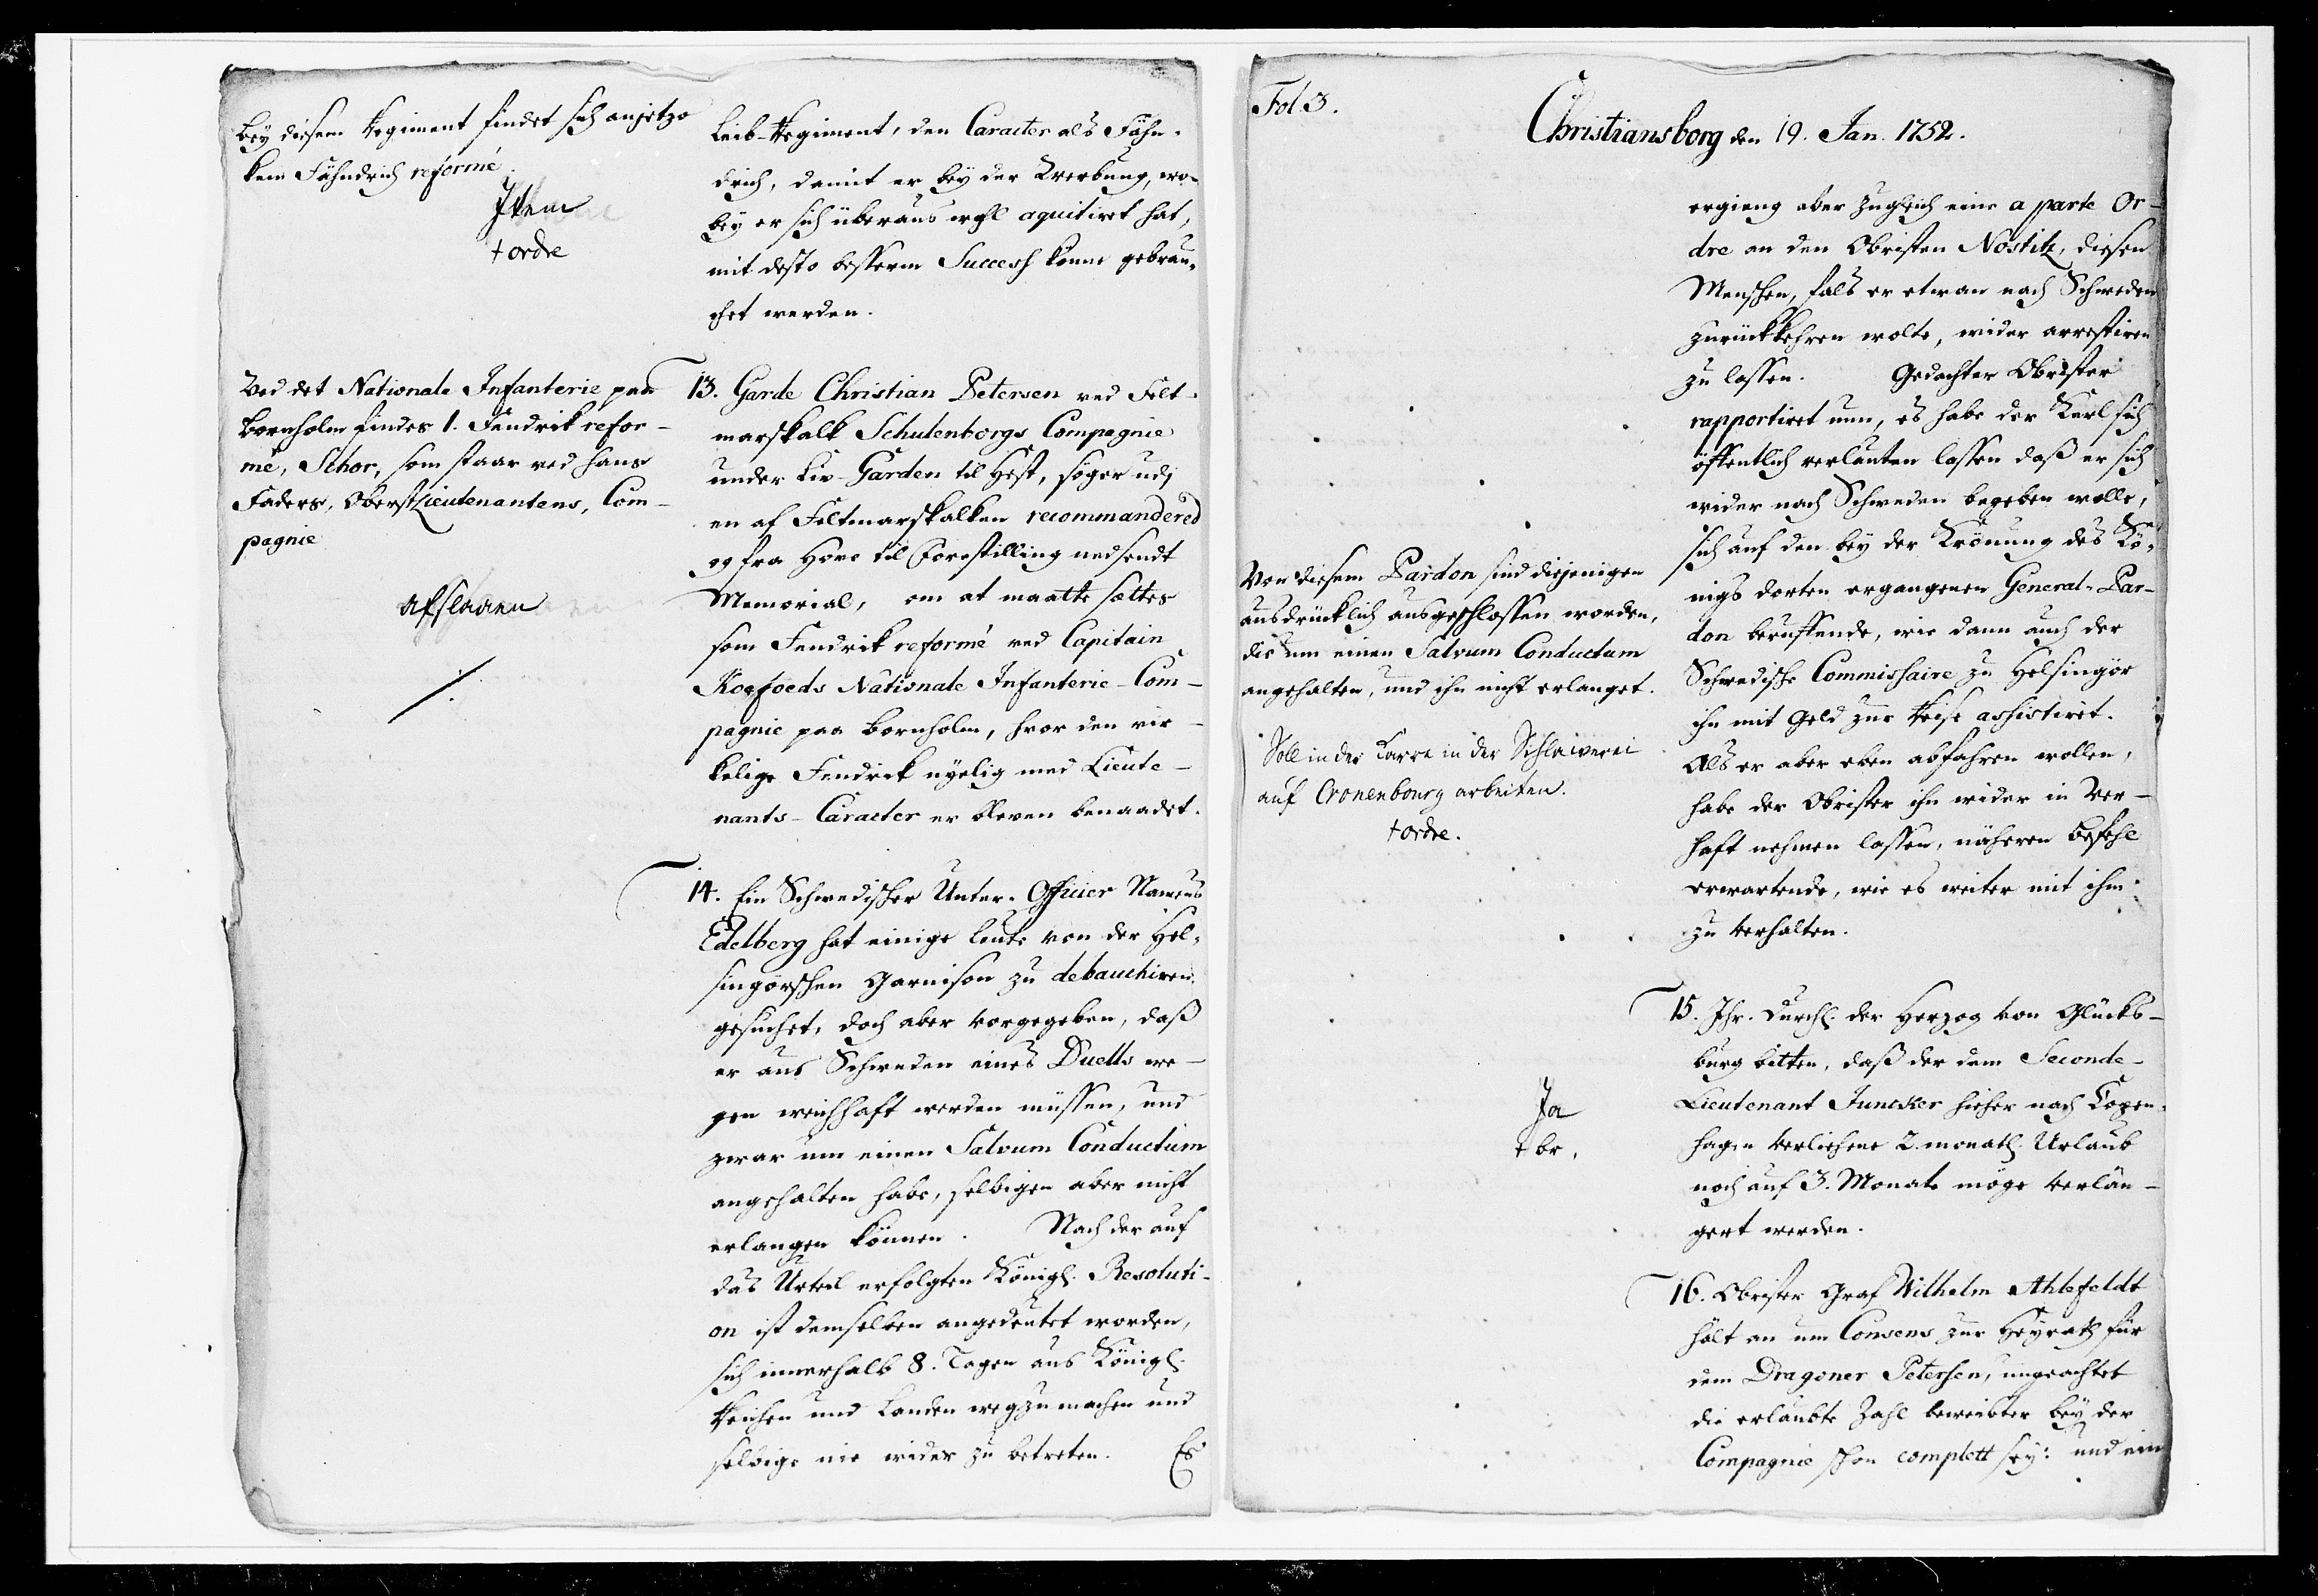 bey diesem Regiment findet sich anjetzo
kein Fähndrich reformé.
Item
† ordre
Leib-Regiment, den Caracter als Fähn-
drich, damit er bey der Werbung, wo-
bey er sich überaus wohl aquitiret hat,
mit desto besserm Success könne gebrau-
chet werden.
Ved det Nationale Infanterie paa
Bornholm findes 1. Fendrik refor-
mé, Schor, som staar ved hans
Faders, OberstLieutenantens, Com-
pagnie
afslaaen
13. Garde Christian Petersen ved Felt-
marskalk Schulenborgs Compagnie
under Liv-Garden til Hest, søger udj
en af Feltmarskalken recommandered
og fra Hove til Forestilling nedsendt
Memorial, om at maatte sættes
som Fendrik reformé ved Capitain
Koefoeds Nationale Infanterie-Com-
pagnie paa Bornholm, hvor den vir-
kelige Fendrick nyelig med Lieute-
nants-Caracter er bleven benaadet.
14. Ein Schwedischer Unter-Officier Namens
Edelberg hat einige Leute von der Hel-
singörschen Garnison zu debauchiren
gesuchet, doch aber vorgegeben, daß
er aus Schweden eines Duells we-
gen weichhaft werden müssen, und
zwar um einen Salvum Conductum
angehalten habe, selbigen aber nicht
erlangen können. Nach der auf
das Urteil erfolgten Königl. Resoluti-
on ist demselben angedeutet worden,
sich innerhalb 8. Tagen aus Königl.
Reichen und Landen wegzumachen und
selbige nie wider zu betreten. Es
Fol. 3.
Christiansborg den 19. Jan. 1752.
ergieng aber zugleich eine a parte Or-
dre an den Obristen Nostitz, diesen
Menschen, fals er etwan nach Schweden
zurückkehren wolte, wider arrestiren
zu lassen. Gedachter Obrister
rapportiret nun, es habe der Kerl sich
öffentlich verlauten lassen daß er sich
wider nach Schweden begeben wolle,
sich auf den bey der Krönung des Kö-
nigs dorten ergangenen General-Par-
don beruffende, wie dann auch der
Schwedische Commissaire zu Helsingör
ihn mit Geld zur Reise assistiret.
Als er aber eben abfahren wollen,
habe der Obrister ihn wider in Ver-
haft nehmen lassen, näheren Befehl
erwartende, wie es weiter mit ihm
zu verhalten.
Von diesem Pardon sind diejenigen
ausdrücklich ausgeschlossen worden,
die um einen Salvum Conductum
angehalten, und ihn nicht erlanget.
Soll in der Karre in der Schlawerei
auf Cronenbourg arbeiten.
† ordre.
15. Ihr. Durchl. der Herzog von Glücks-
burg bitten, daß der dem Seconde-
Lieutenant Juncker hieher nach Copen-
hagen verliehene 2. monatl. Urlaub
noch auf 3. Monate möge verlän-
gert werden.
Ja
† br.
16. Obrister Graf Wilhelm Ahlefeldt
hält an um Consens zur Heyrath für
dem Dragoner Petersen, ungeachtet
die erlaubte Zahl beweibter bey der
Compagnie schon complett sey: und ein